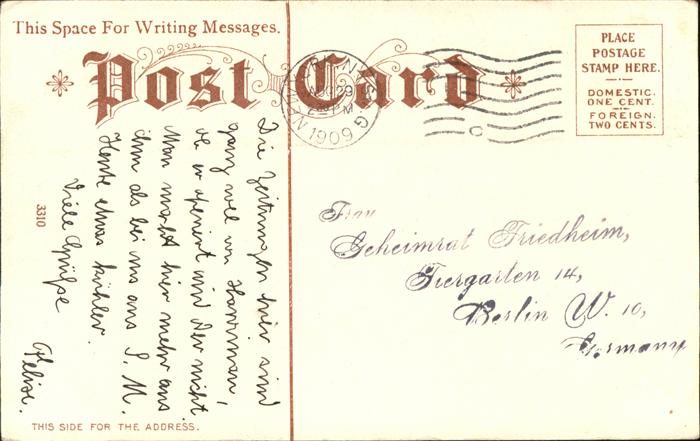 This Space For Writing Messages.
Post Card
PLACE
POSTAGE
STAMP HERE.
DOMESTIC.
ONE CENT.
FOREIGN.
TWO CENTS.
AUG 29
1909
Die Zeitungen hier sind
ganz voll von Harriman,
ob er operiert wird oder nicht.
Man macht hier mehr aus
ihm als bei uns aus S. M.
Heute etwas kühler.
Viele Grüße
Felise.
3310
Frau
Geheimrat Friedheim,
Tiergarten 14,
Berlin W. 10,
Germany
THIS SIDE FOR THE ADDRESS.